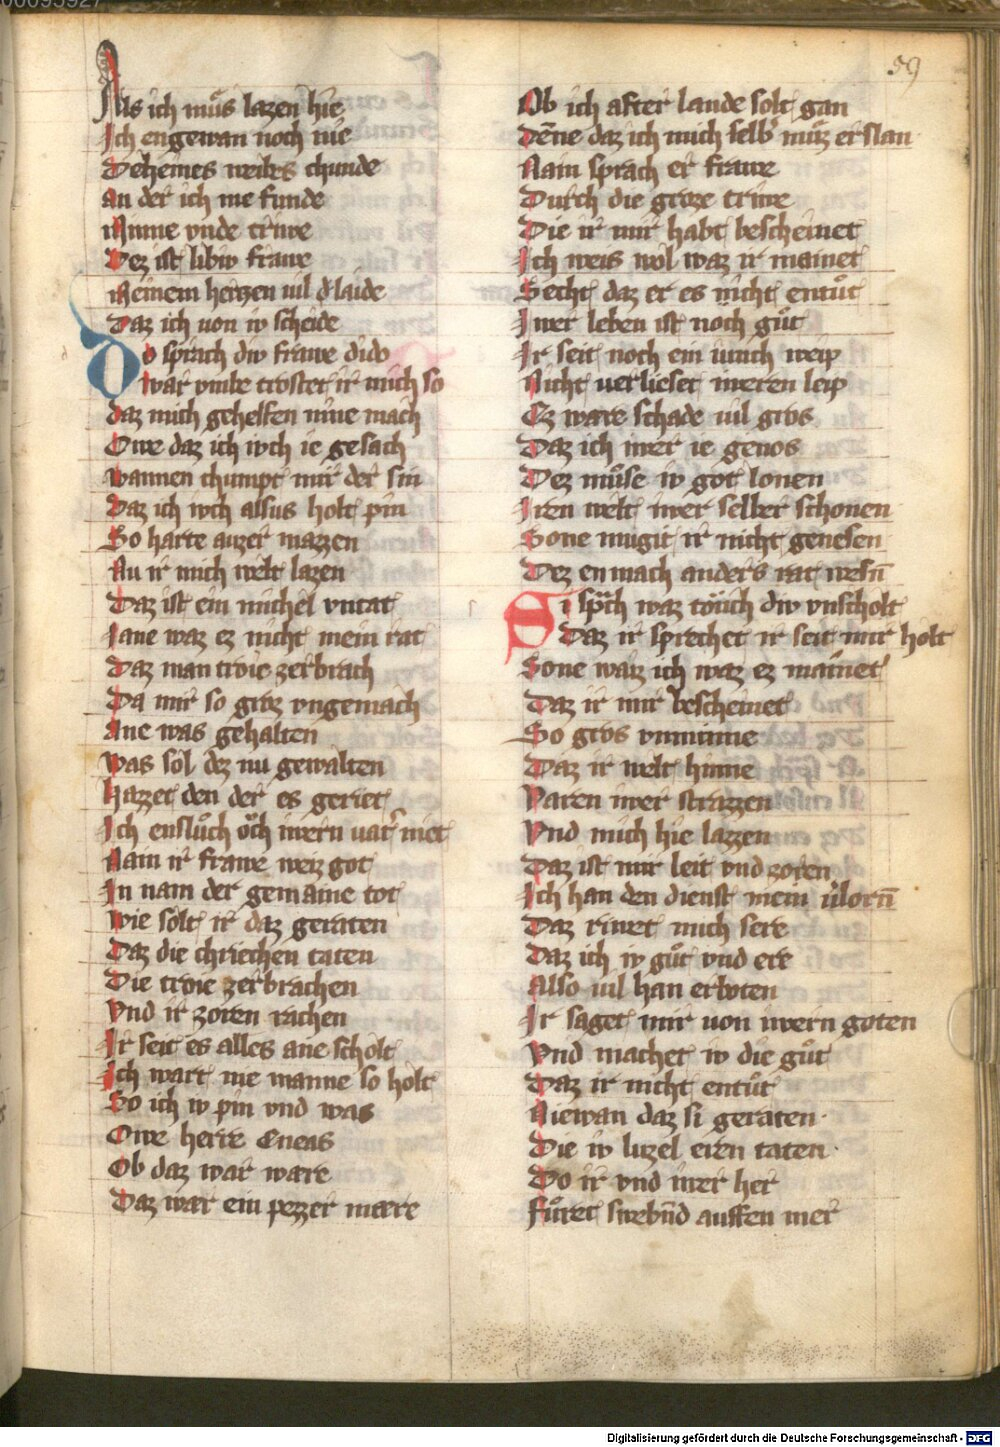 00095927
59
Als ich můs lazen hie
Ich engewan noch nie
Deheines weibes chunde
an der ich me funde
Minne vnde triwe
Dez ist libiv frawe
Meinem hertzen vil de laide
Daz ich von iv scheide
Do sprach div frawe dido
war vmbe trostet ir mich so
daz mich gehelfen niue mach
Owe daz ich ivch ie gesach
wannen chumpt mir der sin
Daz ich ivch alsus holt pin
So harte auzer mazzen
Nu ir mich welt lazen
Daz ist ein michel vntat
Iane waz ez nicht mein rat
Daz man troie zerbrach
Da mir so groz vngemach
Ane was gehalten
was sol dez nu gewalten
hazzet den der es geriet
Ich enslůch och iwern vater niet
Nain ir frawe weiz got
In nam der gemaine tot
wie solt ir daz geraten
Daz die chriechen taten
Die troie zerbrachen
Vnd ir zoren rachen
Ir seit es alles ane scholt
Ich wart nie manne so holt
So ich iv pin vnd was
Owe herre Eneas
Ob daz war ware
Daz war ein pezzer mære
Ob ich after lande solt gan
Denne daz ich mich selb můz erslan
Nain sprach er frawe
Durch die groze triwe
Die ir mir habt bescheinet
Ich weis wol waz ir mainet
Secht daz er es nicht entůt
Iwer leben ist noch gůt
Ir seit noch ein iunch weip
Nicht verlieset iweren leip
Ez ware schade vil gros
Daz ich iwer ie genos
Dez můse iv got lonen
Iren welt iwer selber schonen
Sone mugit ir nicht genesen
Dez en mach anders rat wesn
Si sprach waz touch div vnscholt
Daz ir sprechet ir seit mir holt
Sone waiz ich waz ez mainet
Daz ir mir bescheinet
So gros vnminne
Daz ir welt hinne
Varen iwer strazzen
Vnd mich hie lazzen
Daz ist mir leit vnd zoren
Ich han den dienst mein vlorn
Daz riwet mich sere
Daz ich iv gůt vnd ere
Also vil han erboten
Ir saget mir von iwern goten
Vnd machet iv die gůt
Daz ir nicht entůt
Niewan daz si geraten
Die iv luzel eren taten
Do ir vnd iwer her
Fůret swebnd auffen mer
Digitalisierung gefördert durch die Deutsche Forschungsgemeinschaft - DFG